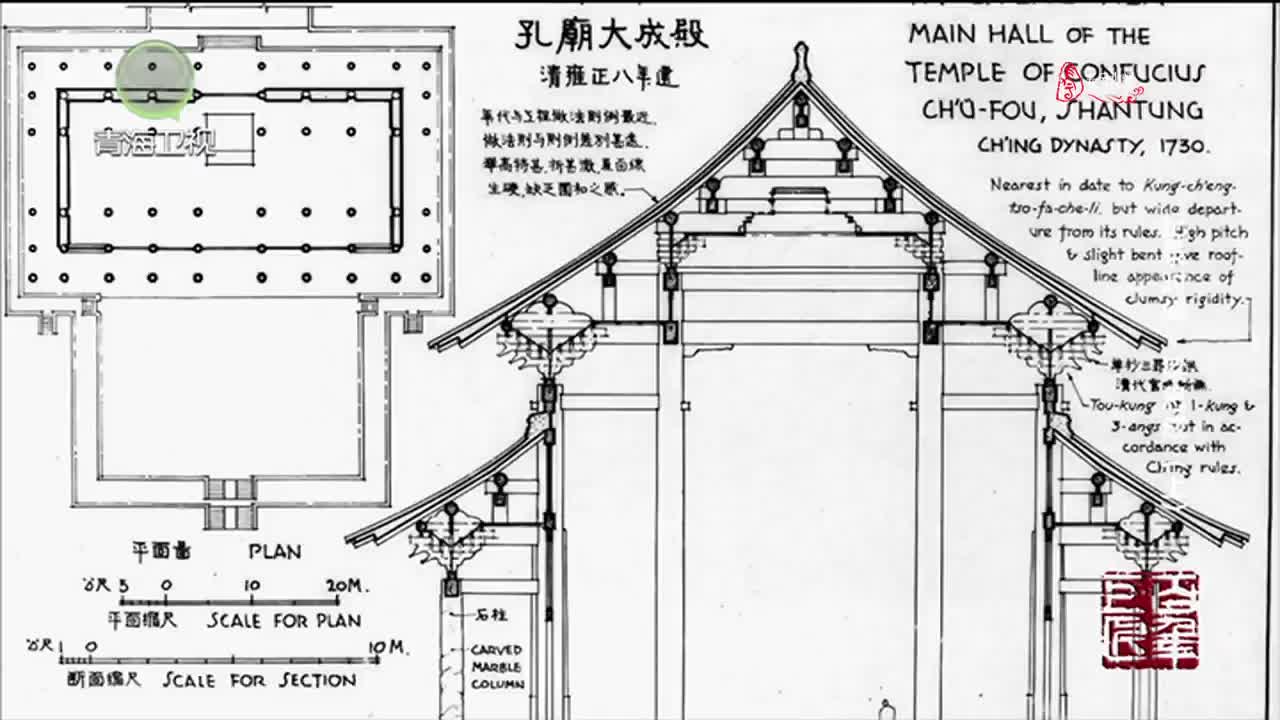 孔廟大成殿
清雍正八年建
年代与工程做法則例最近,
做法則与則例差别甚遠.
舉高特甚,折甚微,直角緣
生硬,缺乏圜和之感.
MAIN HALL OF THE
TEMPLE OF CONFUCIUS
CH'Ü-FOU, SHANTUNG
CH'ING DYNASTY, 1730.
Nearest in date to Kung-ch'eng-
tso-fa-che-li, but wide depart-
ure from its rules. High pitch
& slight bent give roof-
line appearance of
clumsy rigidity.
清代官式
Tou-kung 1-kung &
3-angs but in ac-
cordance with
Ch'ing rules.
青海卫视
平面圖 PLAN
公尺 5 0 10 20M.
平面縮尺 SCALE FOR PLAN
公尺 1 0 10 M.
断面縮尺 SCALE FOR SECTION
石柱
CARVED
MARBLE
COLUMN